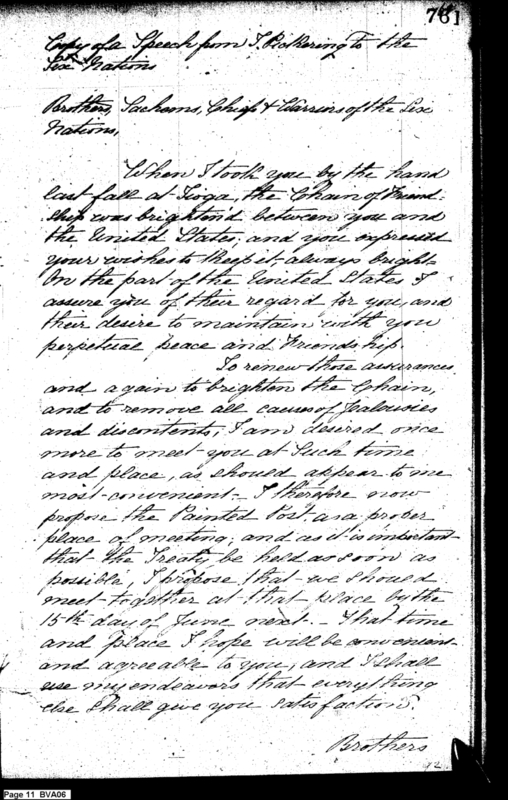 761
Copy of a Speech from T. Pickering To the
Six Nations
Brothers, Sachems, Chiefs & Warriors of the Six
Nations,
When I took you by the hand
last fall at Tioga, the Chain of Friend-
ship was brighten'd between you and
the United States, and you expressed
your wishes to keep it always bright
On the part of the United States I
assure you of their regard for you, and
their desire to maintain with you
perpetual peace and Friendship.
To renew those assurances
and again to brighten the Chain,
and to remove all causes of Jealousies
and discontents, I am desired once
more to meet you at Such time
and place, as should appear to me
most convenient - I therefore now
propose the Painted Post as a proper
place of meeting; and as it is important
that the Treaty be held as soon as
possible, I propose that we should
meet together at that place by the
15th day of June next. - That time
and place I hope will be convenient
and agreeable to you, and I shall
use my endeavors that everything
else shall give you satisfaction.
Brothers
Page 11 BVA06